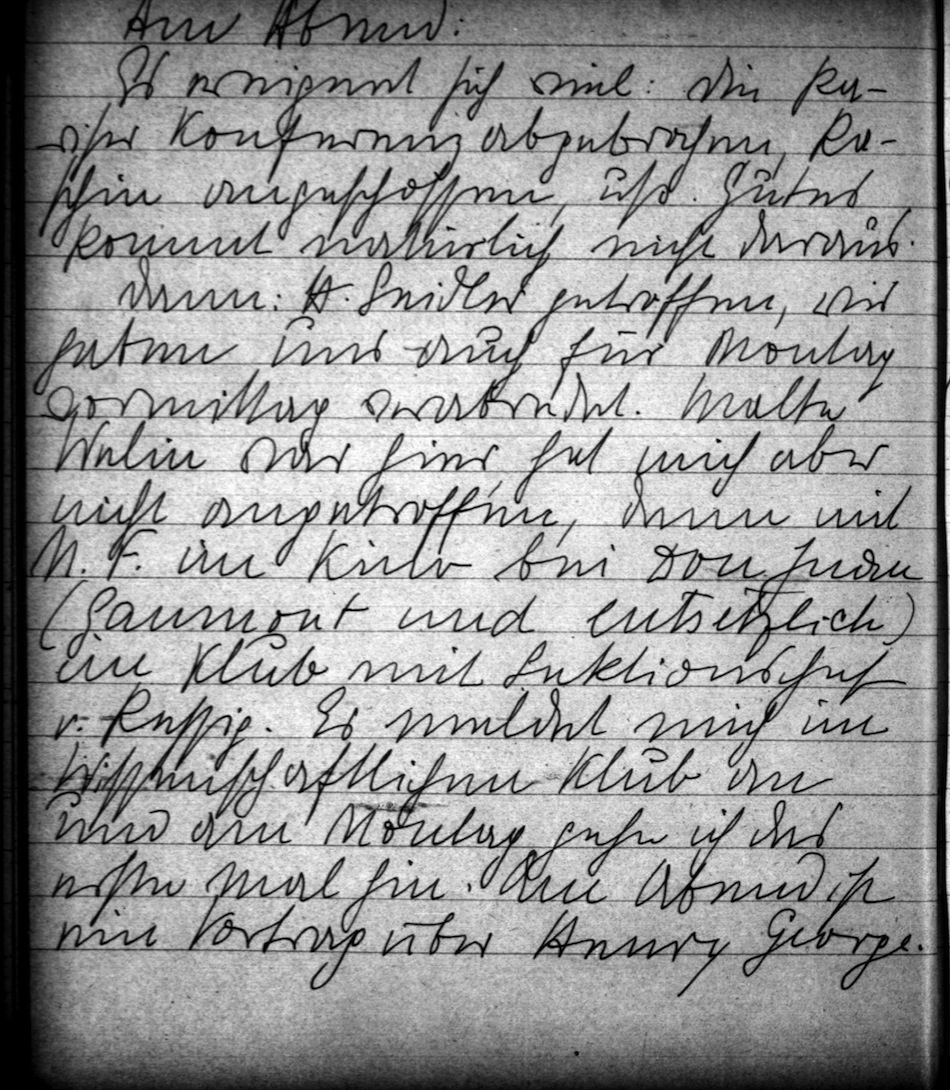 Am Abend:
Es ereignet sich viel: die Pa-
riser Konferenz abgebrochen, Ra-
thin angeschossen, usw. Gutes
kommt natürlich nicht daraus.
Dann: H. Seidler getroffen, wir
haben uns auch für Montag
vormittag verabredet. Malta
Welin war hier, hat mich aber
nicht angetroffen, dann mit
M. F. im Kino bei Don Juan
(Gaumont und entsetzlich)
im Klub mit Sektionschef
v. Rassig. Er meldet mich im
Wissenschaftlichen Klub an
und am Montag gehe ich das
erste Mal hin. Am Abend ist
ein Vortrag über Henry George.